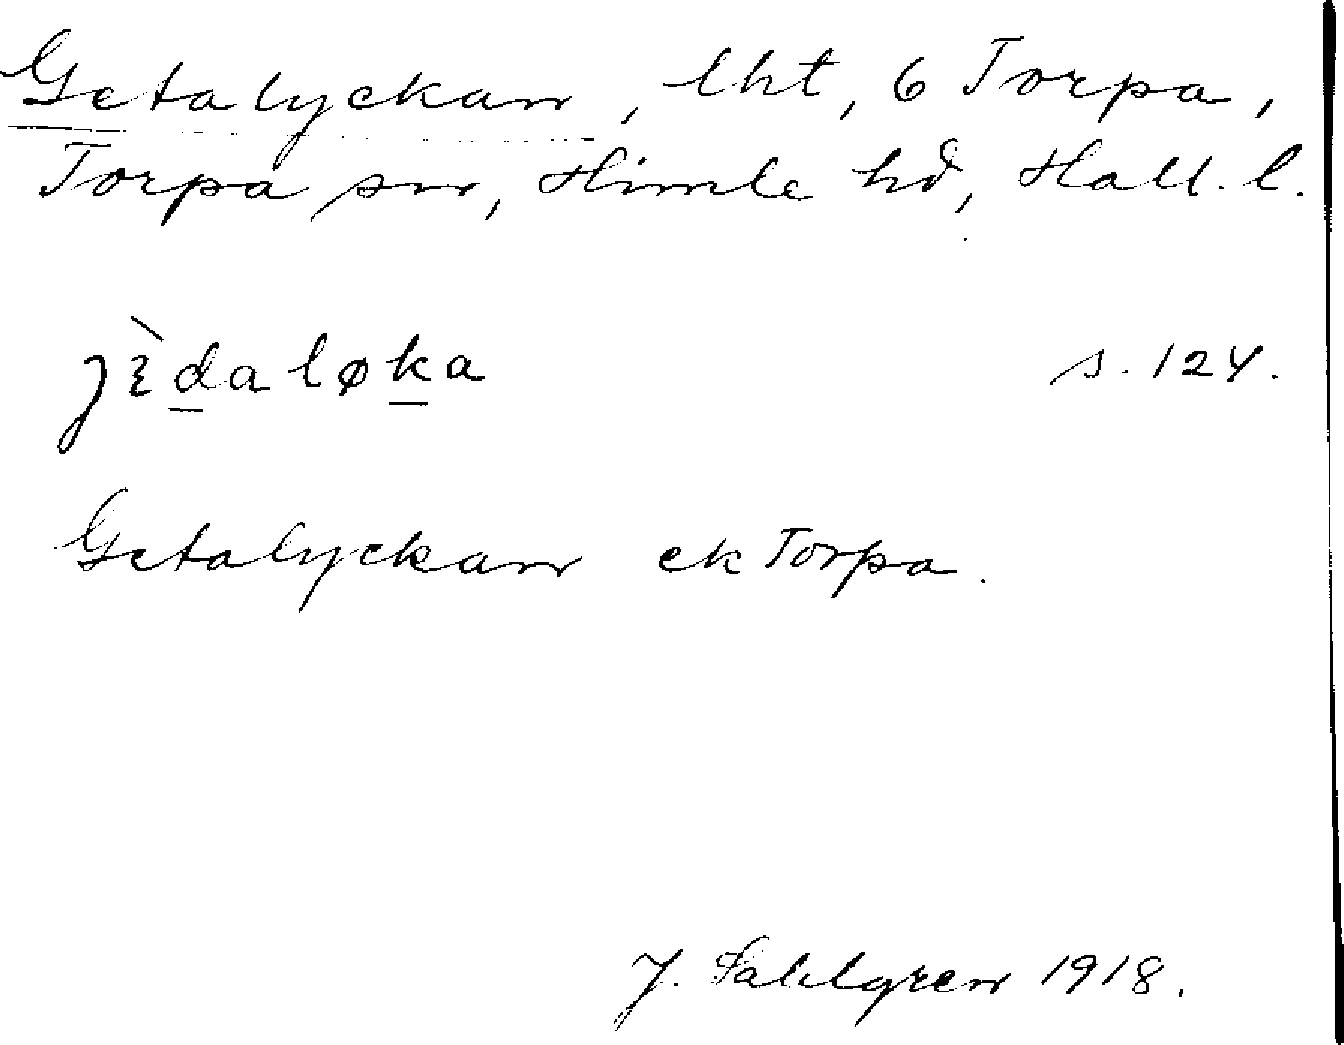 Getalyckan, lht, 6 Torpa,
Torpa sn, Himle hd, Hall. l.
jɛ̀daløka s. 124.
Getalyckan ek Torpa.
J. Sahlgren 1918.